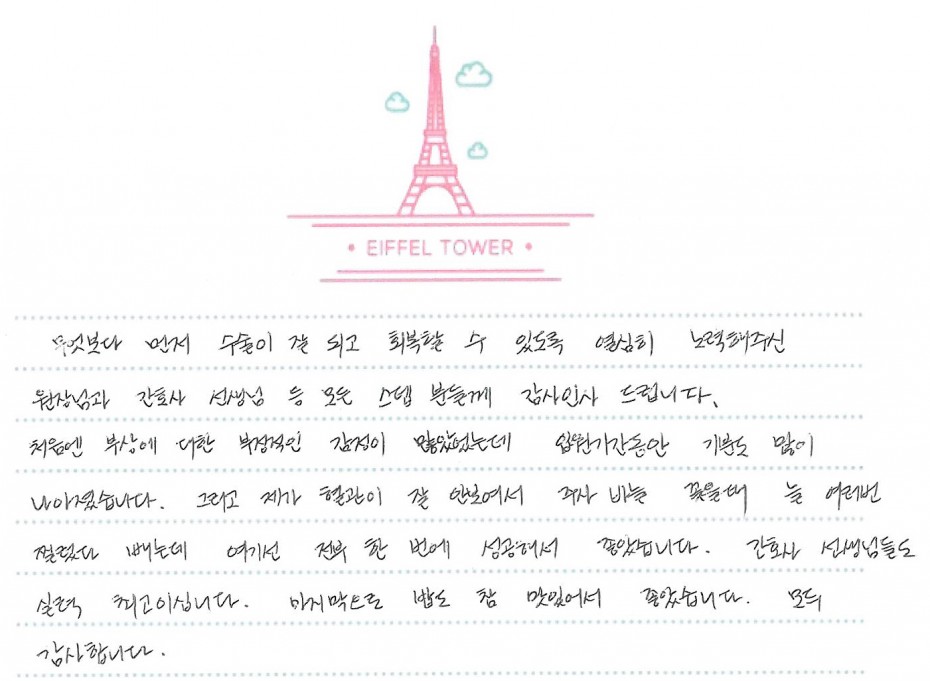 EIFFEL TOWER
무엇보다 먼저 수술이 잘 되고 회복할 수 있도록 열심히 노력해주신
원장님과 간호사 선생님 등 모든 스텝 분들께 감사인사 드립니다.
처음엔 부상에 대한 부정적인 감정이 많았었는데 입원기간동안 기분도 많이
나아졌습니다. 그리고 제가 혈관이 잘 안보여서 주사 바늘 꽂을때 늘 여러번
찔렀다 빼는데 여기선 전부 한 번에 성공해서 좋았습니다. 간호사 선생님들도
실력 최고이십니다. 마지막으로 밥도 참 맛있어서 좋았습니다. 모두
감사합니다.